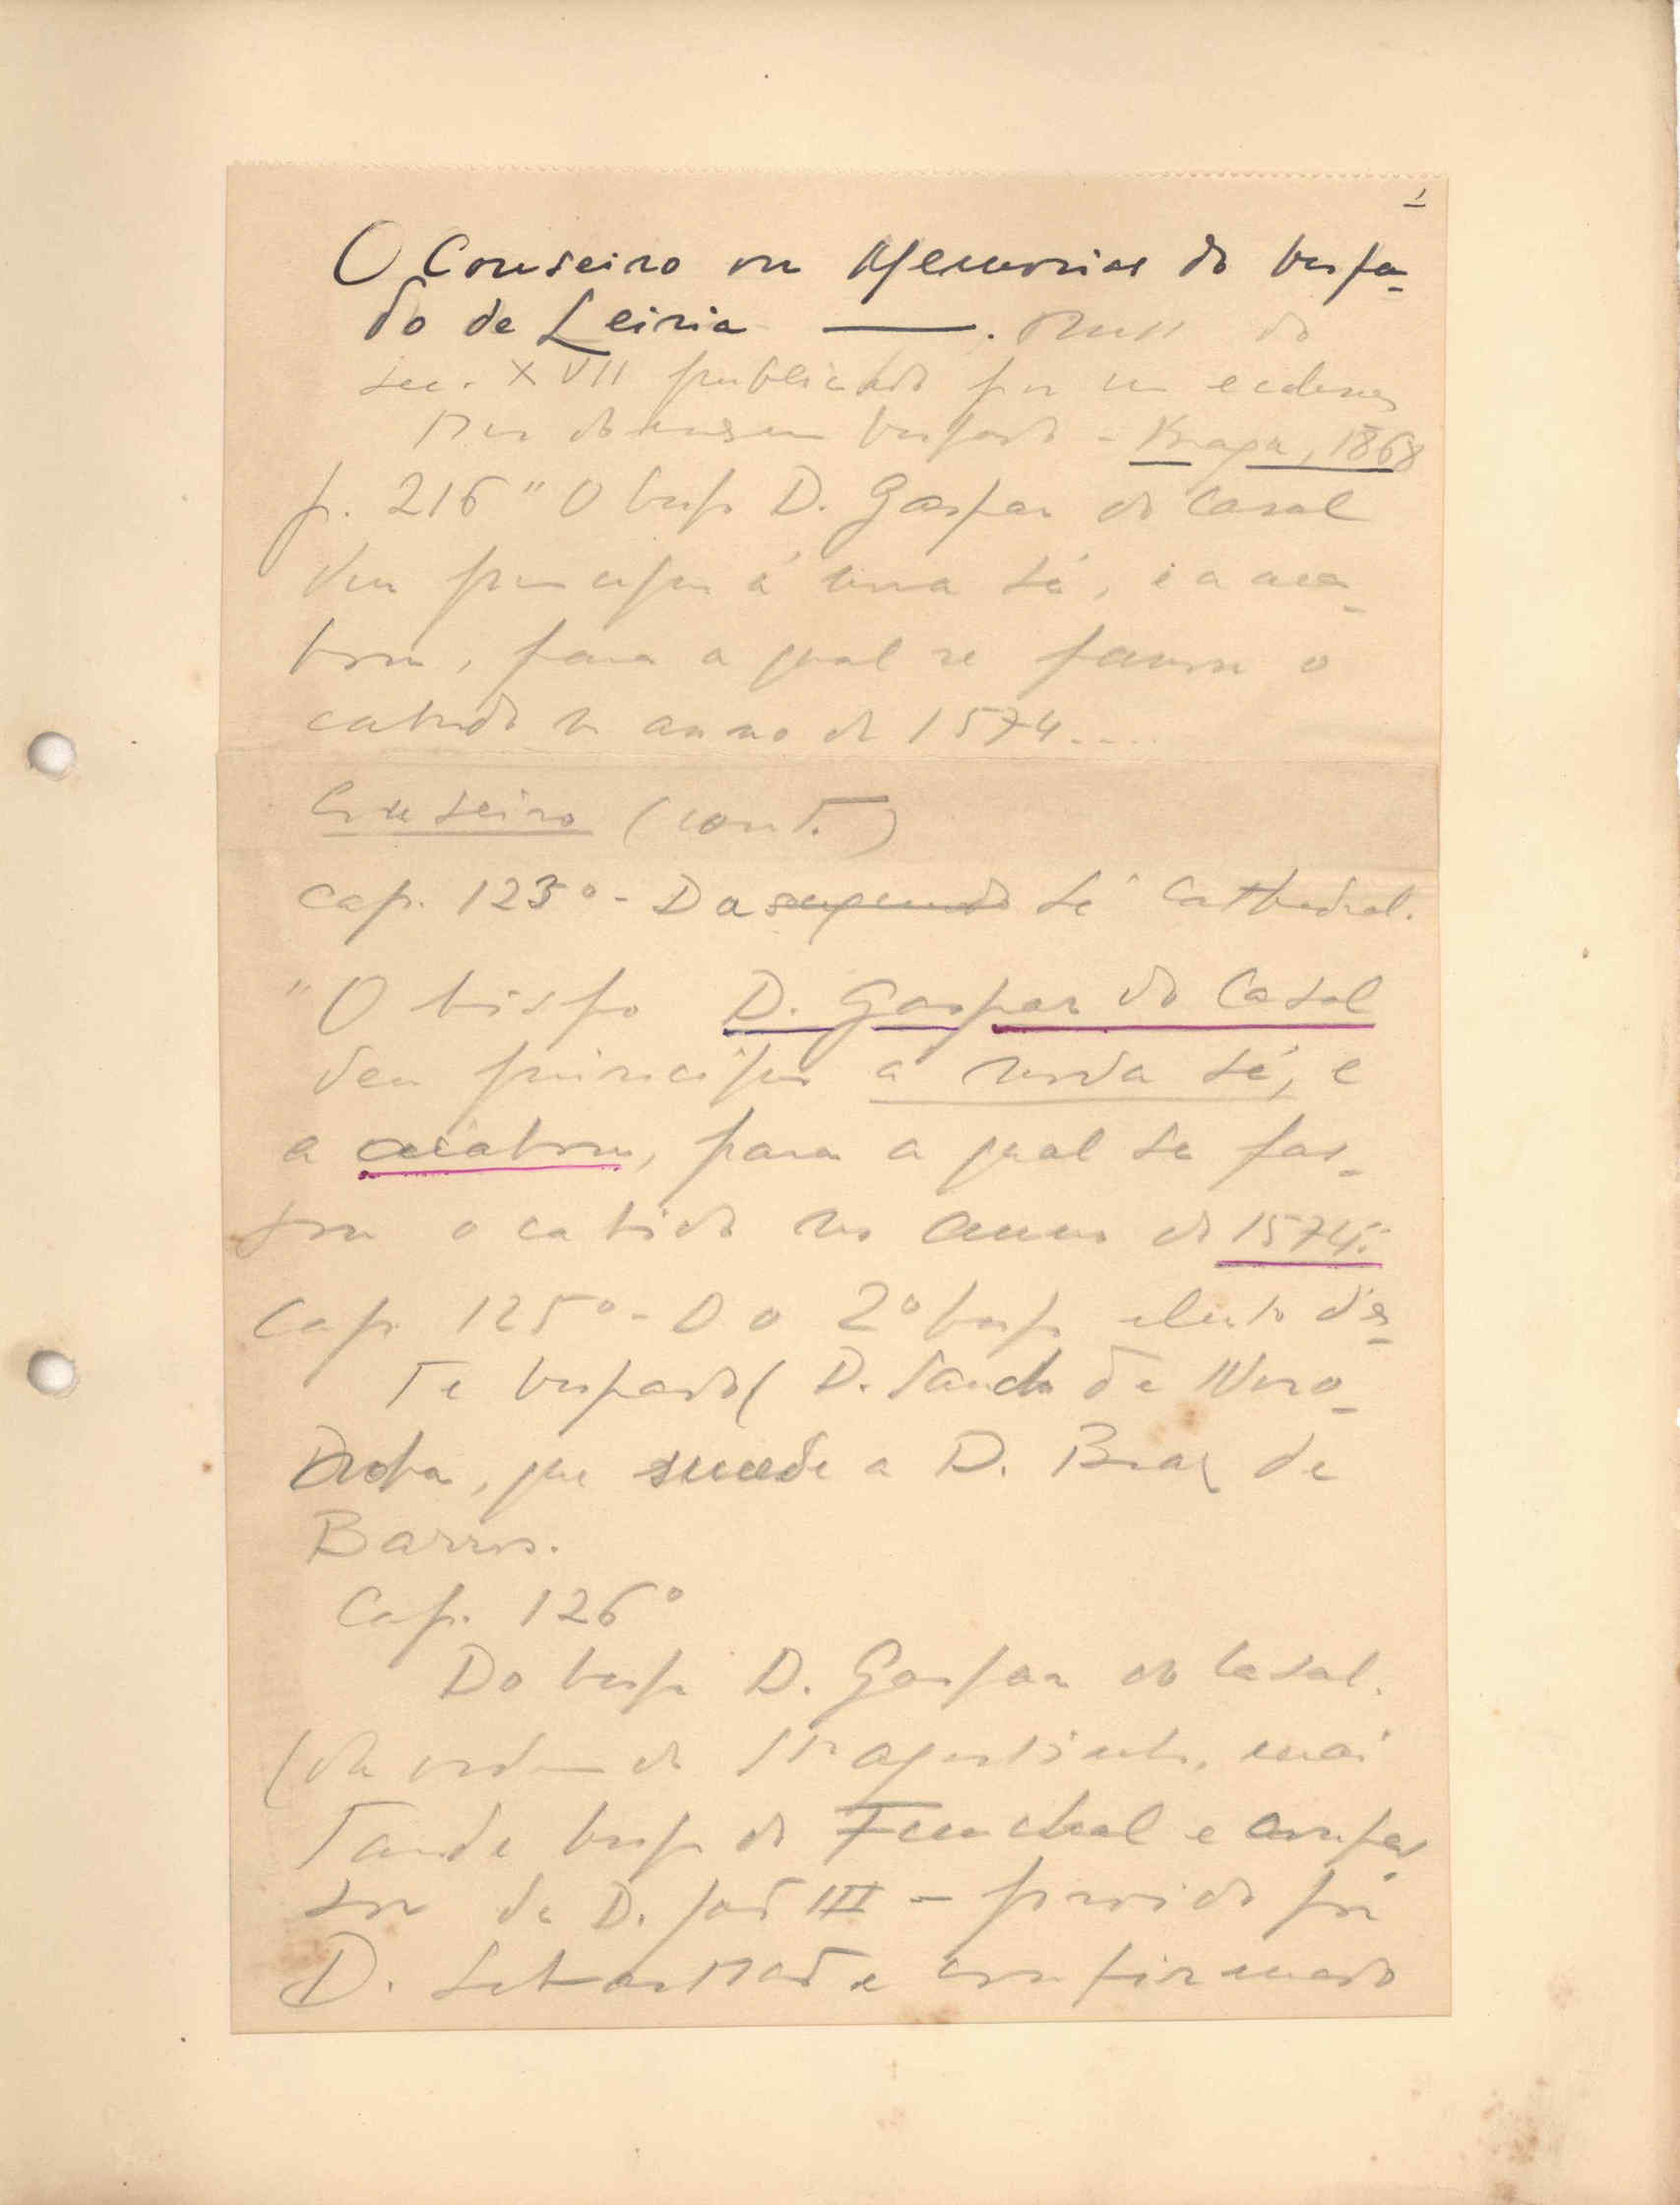 1
O Couseiro ou Memorias do bispa-
do de Leiria ——. Mss do
sec. XVII publicado por um ecclesias
tico do mesmo bispado - Braga, 1868
p. 216 "O bispo D. Gaspar do Casal
deu principio á nova sé, e a aca-
bou, para a qual se passou o
cabido no anno de 1574....
Couseiro (cont.)
Cap. 123º - Da segunda Sé Cathedral.
"O bispo D. Gaspar do Casal
deu principio á nova sé, e
a acabou, para a qual se pas-
sou o cabido no anno de 1574."
Cap. 125º - Do 2º bispo eleito d'es-
te bispado (D. Sancho de Noro-
nha, que sucede a D. Braz de
Barros.
Cap. 126º
Do bispo D. Gaspar do Casal.
(da ordem de Stº agostinho, mais
tarde bispo do Funchal e confes
sor de D. João III - provido por
D. Sebastião e confirmado